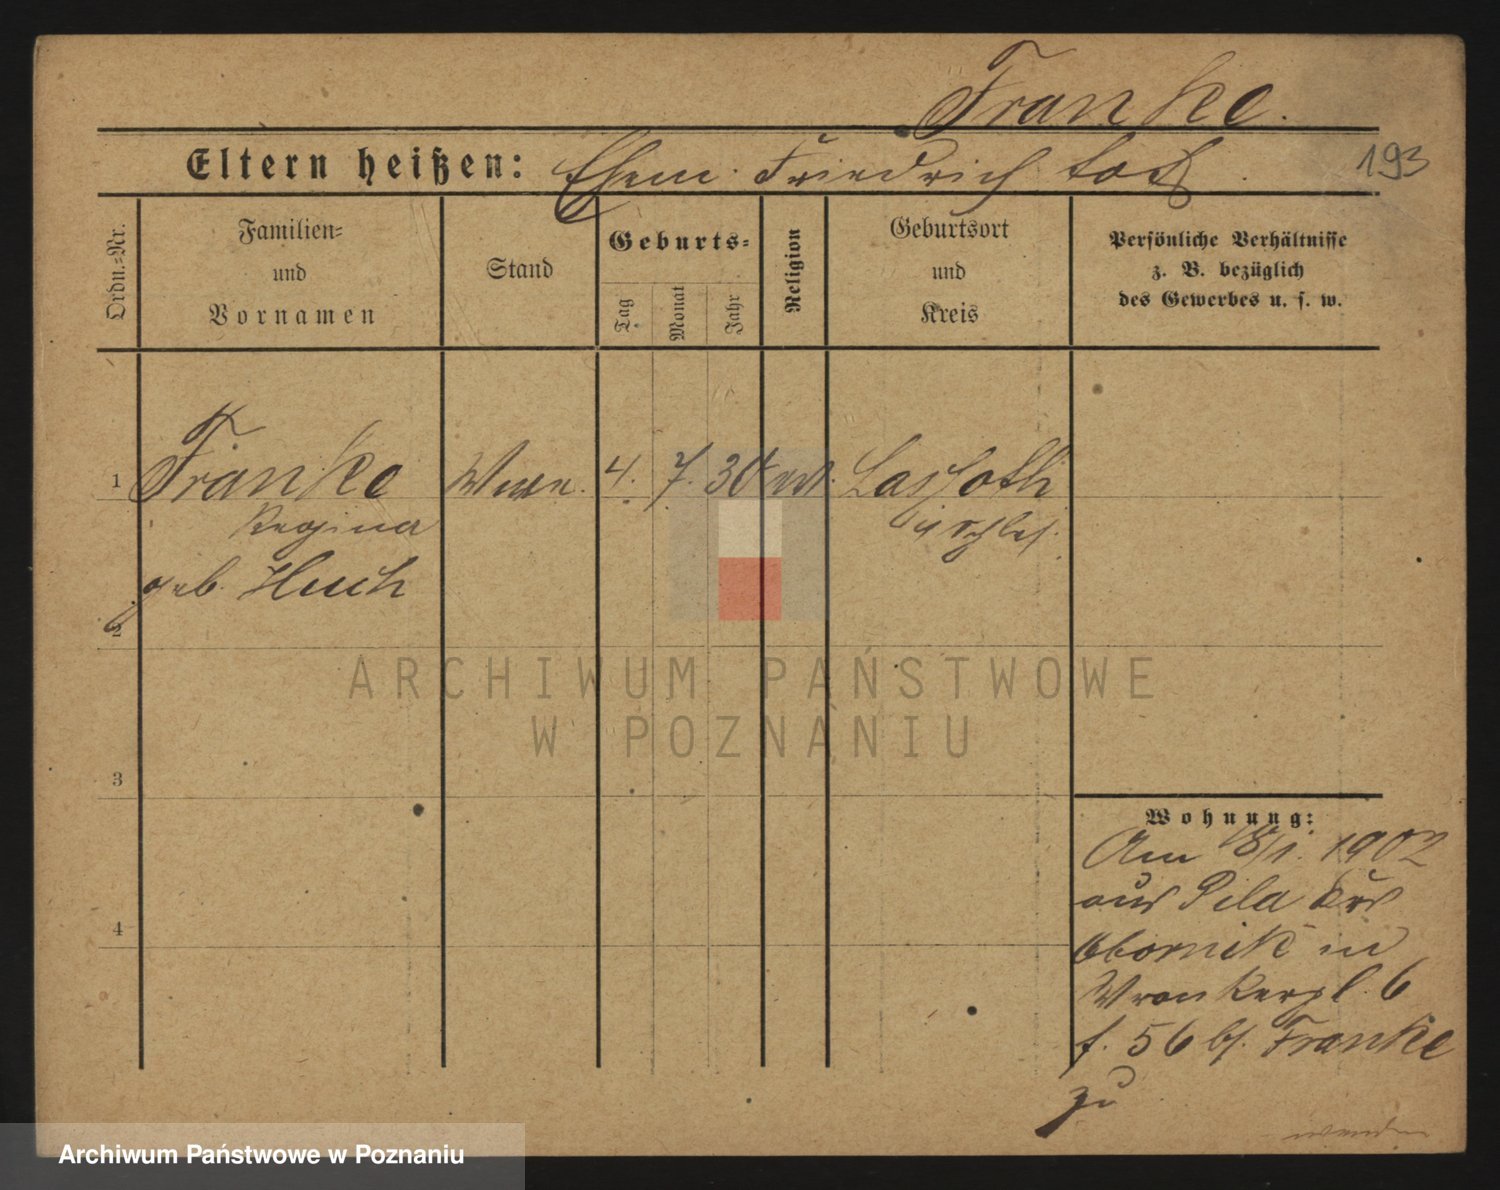 Franke.
Eltern heißen: Ehem. Friedrich tot
193
Ordn.=Nr.
Familien=
und
Vornamen
Stand
Geburts=
Tag
Monat
Jahr
Religion
Geburtsort
und
Kreis
Persönliche Verhältnisse
z. B. bezüglich
des Gewerbes u. s. w.
1 Franke Wwe. 4. 7. 30 ev. Lassoth
Regina i/Schles.
geb. Huch
2
3
4
Wohnung:
Am 18/1. 1902
aus Pila Krs
Obornik in
Wronkerpl. 6
f. 56 bs. Franke
zu
wenden
ARCHIWUM PAŃSTWOWE
W POZNANIU
Archiwum Państwowe w Poznaniu